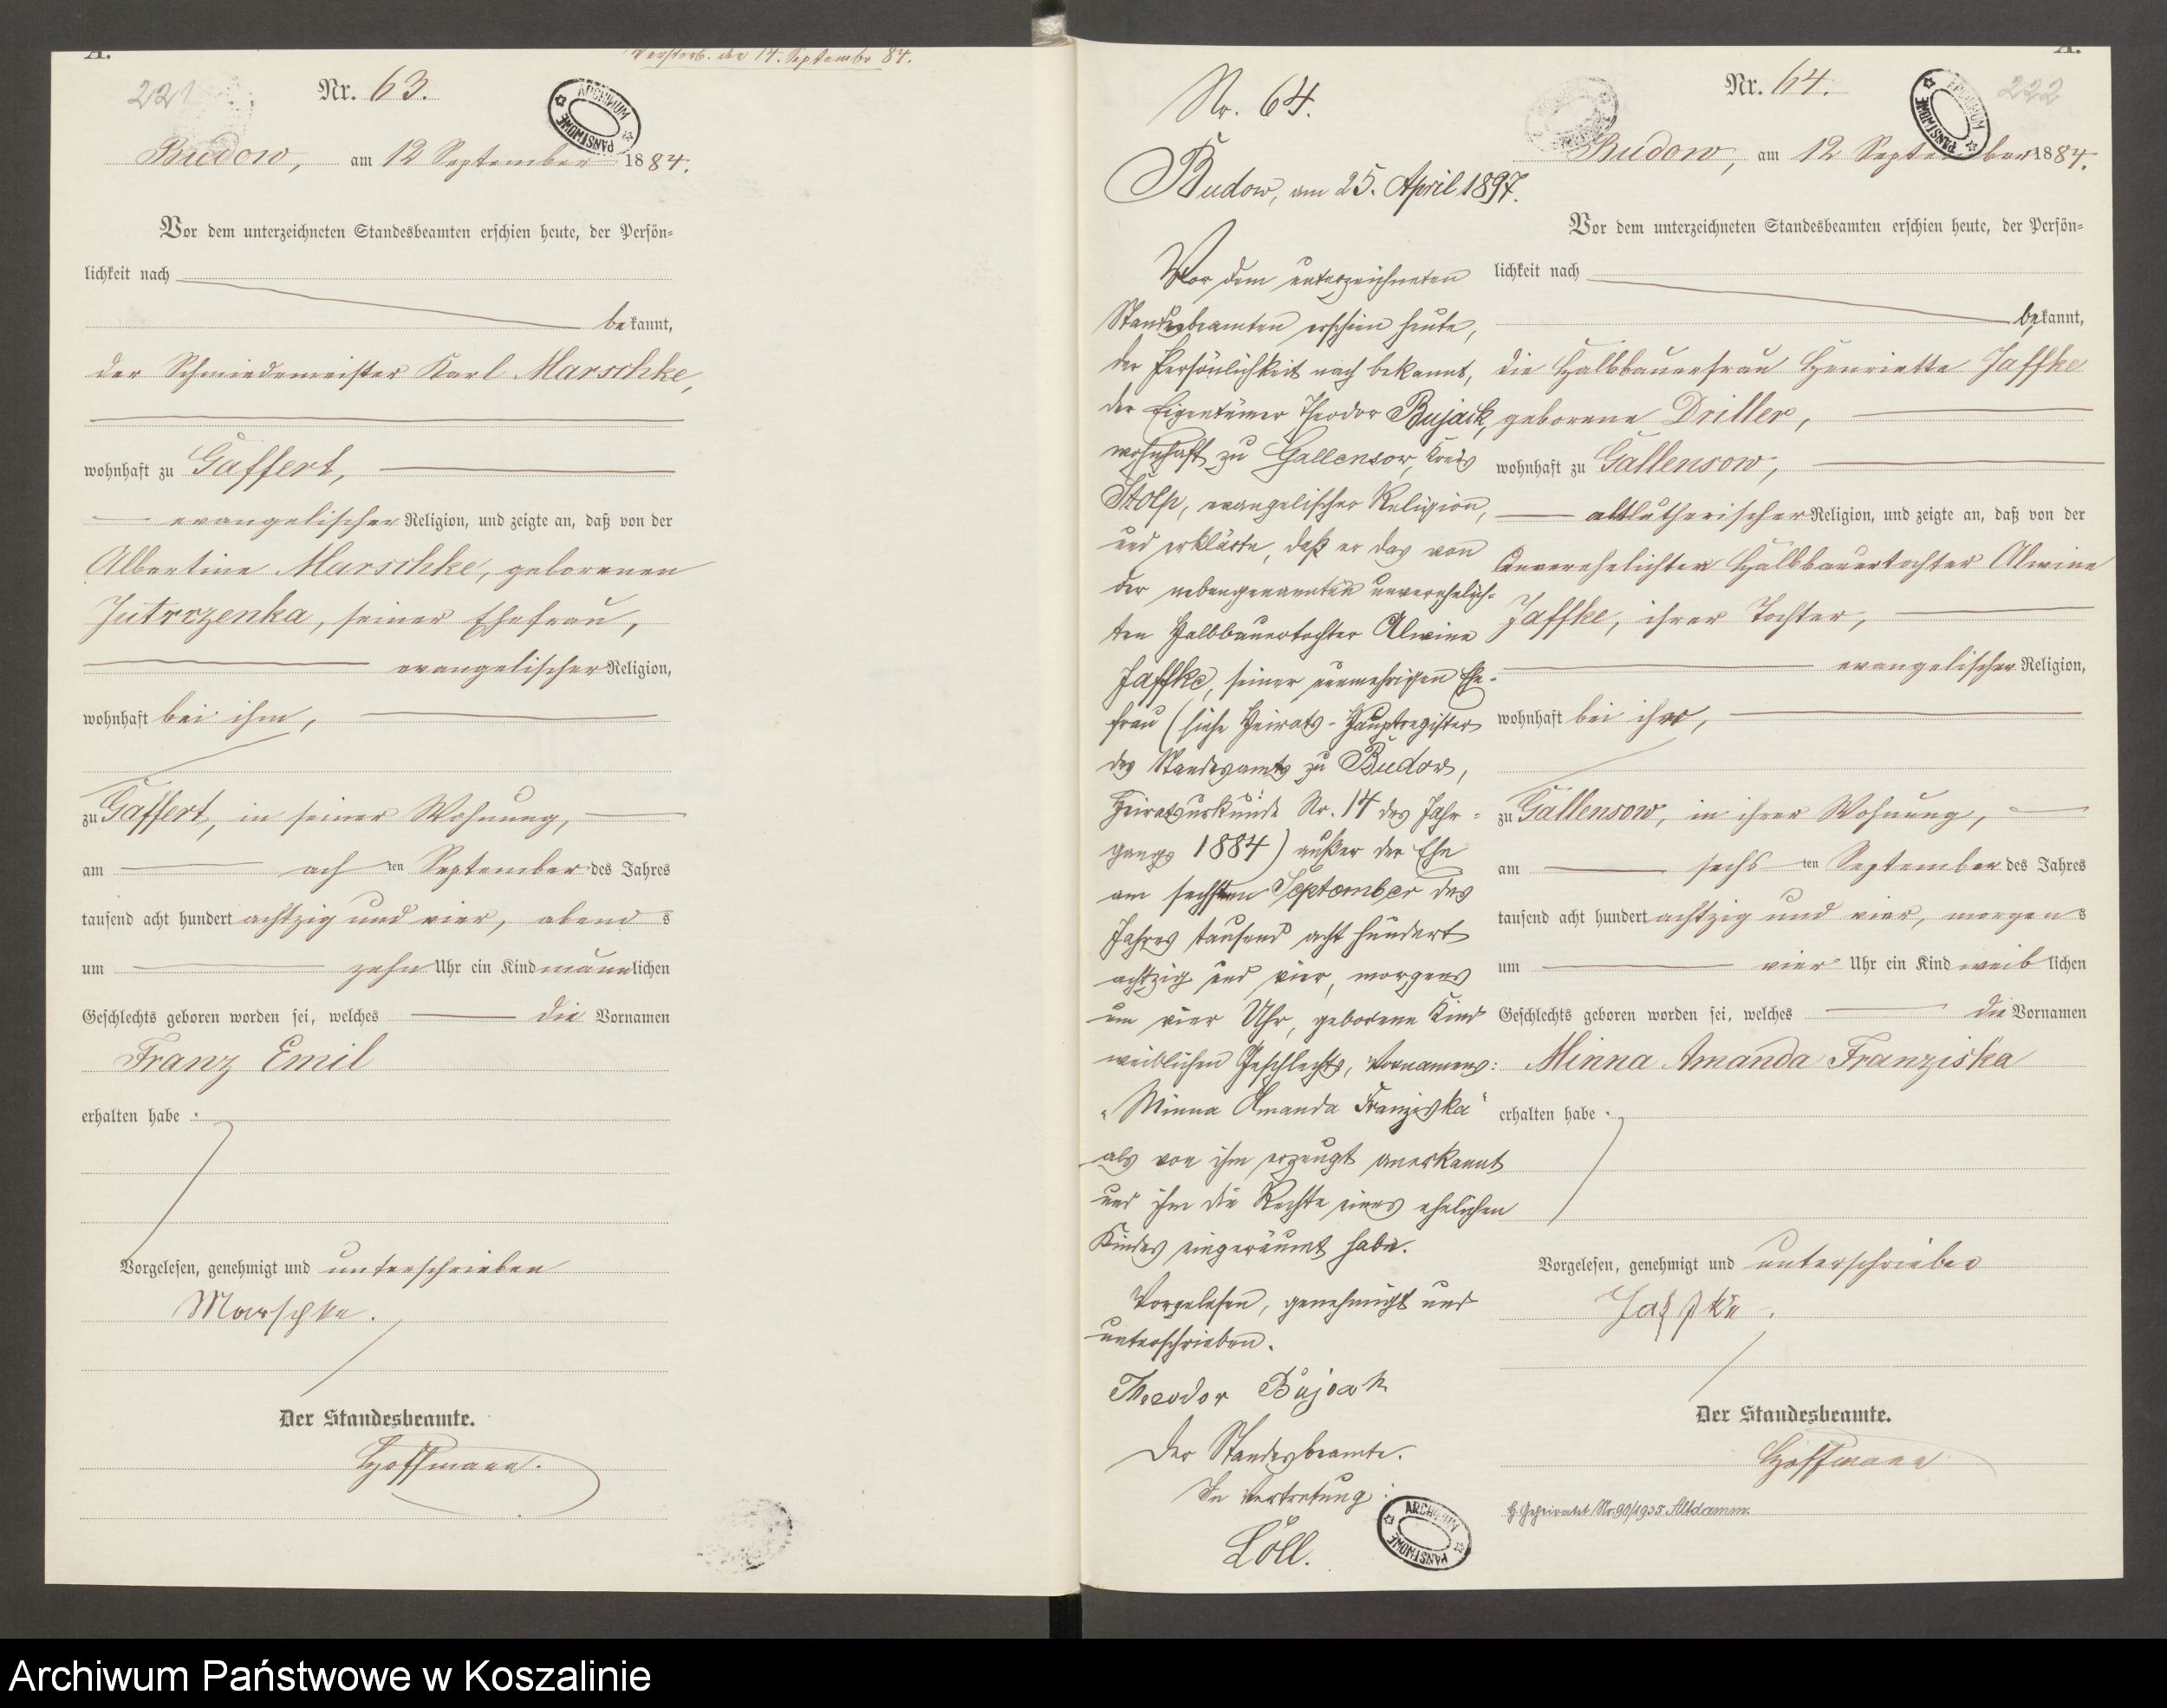 A.
Verstorb. den 14. September 84.
221
Nr. 63.
ARCHIWUM PAŃSTWOWE
Budow, am 12 September 1884.
Vor dem unterzeichneten Standesbeamten erschien heute, der Persön-
lichkeit nach
bekannt,
der Schmiedemeister Karl Marschke,
wohnhaft zu Gaffert,
evangelischer Religion, und zeigte an, daß von der
Albertine Marschke, geborenen
Jutrczenka, seiner Ehefrau,
evangelischer Religion,
wohnhaft bei ihm,
zu Gaffert, in seiner Wohnung,
am achten September des Jahres
tausend acht hundert achtzig und vier, abends
um zehn Uhr ein Kind männlichen
Geschlechts geboren worden sei, welches die Vornamen
Franz Emil
erhalten habe.
Vorgelesen, genehmigt und unterschrieben
Marschke.
Der Standesbeamte.
Hoffmann.
Nr. 64.
Budow, am 25. April 1897.
Vor dem unterzeichneten
Standesbeamten erschien heute,
der Persönlichkeit nach bekannt,
der Eigentümer Theodor Bujack,
wohnhaft zu Gallensow, Kreis
Stolp, evangelischer Religion,
und erklärte, daß er das von
der nebengenannten unverehelich-
ten Halbbauertochter Alwine
Jaffke, seiner nunmehrigen Ehe-
frau (siehe Heirats-Hauptregister
des Standesamts zu Budow,
Heiratsurkunde Nr. 14 des Jahr-
gangs 1884) außer der Ehe
am sechsten September des
Jahres tausend acht hundert
achtzig und vier, morgens
um vier Uhr, geborene Kind
weiblichen Geschlechts, Vornamens:
"Minna Amanda Franziska"
als von ihm erzeugt anerkannt
und ihm die Rechte eines ehelichen
Kindes eingeräumt habe.
Vorgelesen, genehmigt und
unterschrieben.
Theodor Bujack
Der Standesbeamte.
In Vertretung:
Löll.
ARCHIWUM PAŃSTWOWE
A.
Nr. 64.
222
ARCHIWUM PAŃSTWOWE
Budow, am 12 September 1884.
Vor dem unterzeichneten Standesbeamten erschien heute, der Persön-
lichkeit nach
bekannt,
die Halbbauerfrau Henriette Jaffke
geborene Driller,
wohnhaft zu Gallensow,
altlutherischer Religion, und zeigte an, daß von der
unverehelichten Halbbauertochter Alwine
Jaffke, ihrer Tochter,
evangelischer Religion,
wohnhaft bei ihr,
zu Gallensow, in ihrer Wohnung,
am sechsten September des Jahres
tausend acht hundert achtzig und vier, morgens
um vier Uhr ein Kind weiblichen
Geschlechts geboren worden sei, welches die Vornamen
Minna Amanda Franziska
erhalten habe.
Vorgelesen, genehmigt und unterschrieben
Jaffke.
Der Standesbeamte.
Hoffmann
Geheiratet Nr. 90/1935 Altdamm.
Archiwum Państwowe w Koszalinie